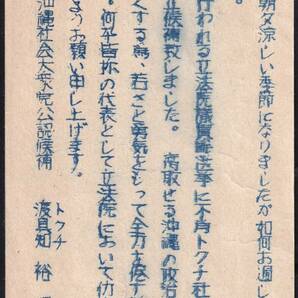 朝夕涼しい季節になりましたが如何お過し
行われる立法院議員総選挙に不肖トクチ社
立候補致しました。腐敗せる沖縄の政治
くする為、若さと勇気をもって全力を傾す
。何卒皆妳の代表として立法院において仂
ようお願い申し上げます。
沖縄社会大衆党公認候補
トクチ
渡具知 裕